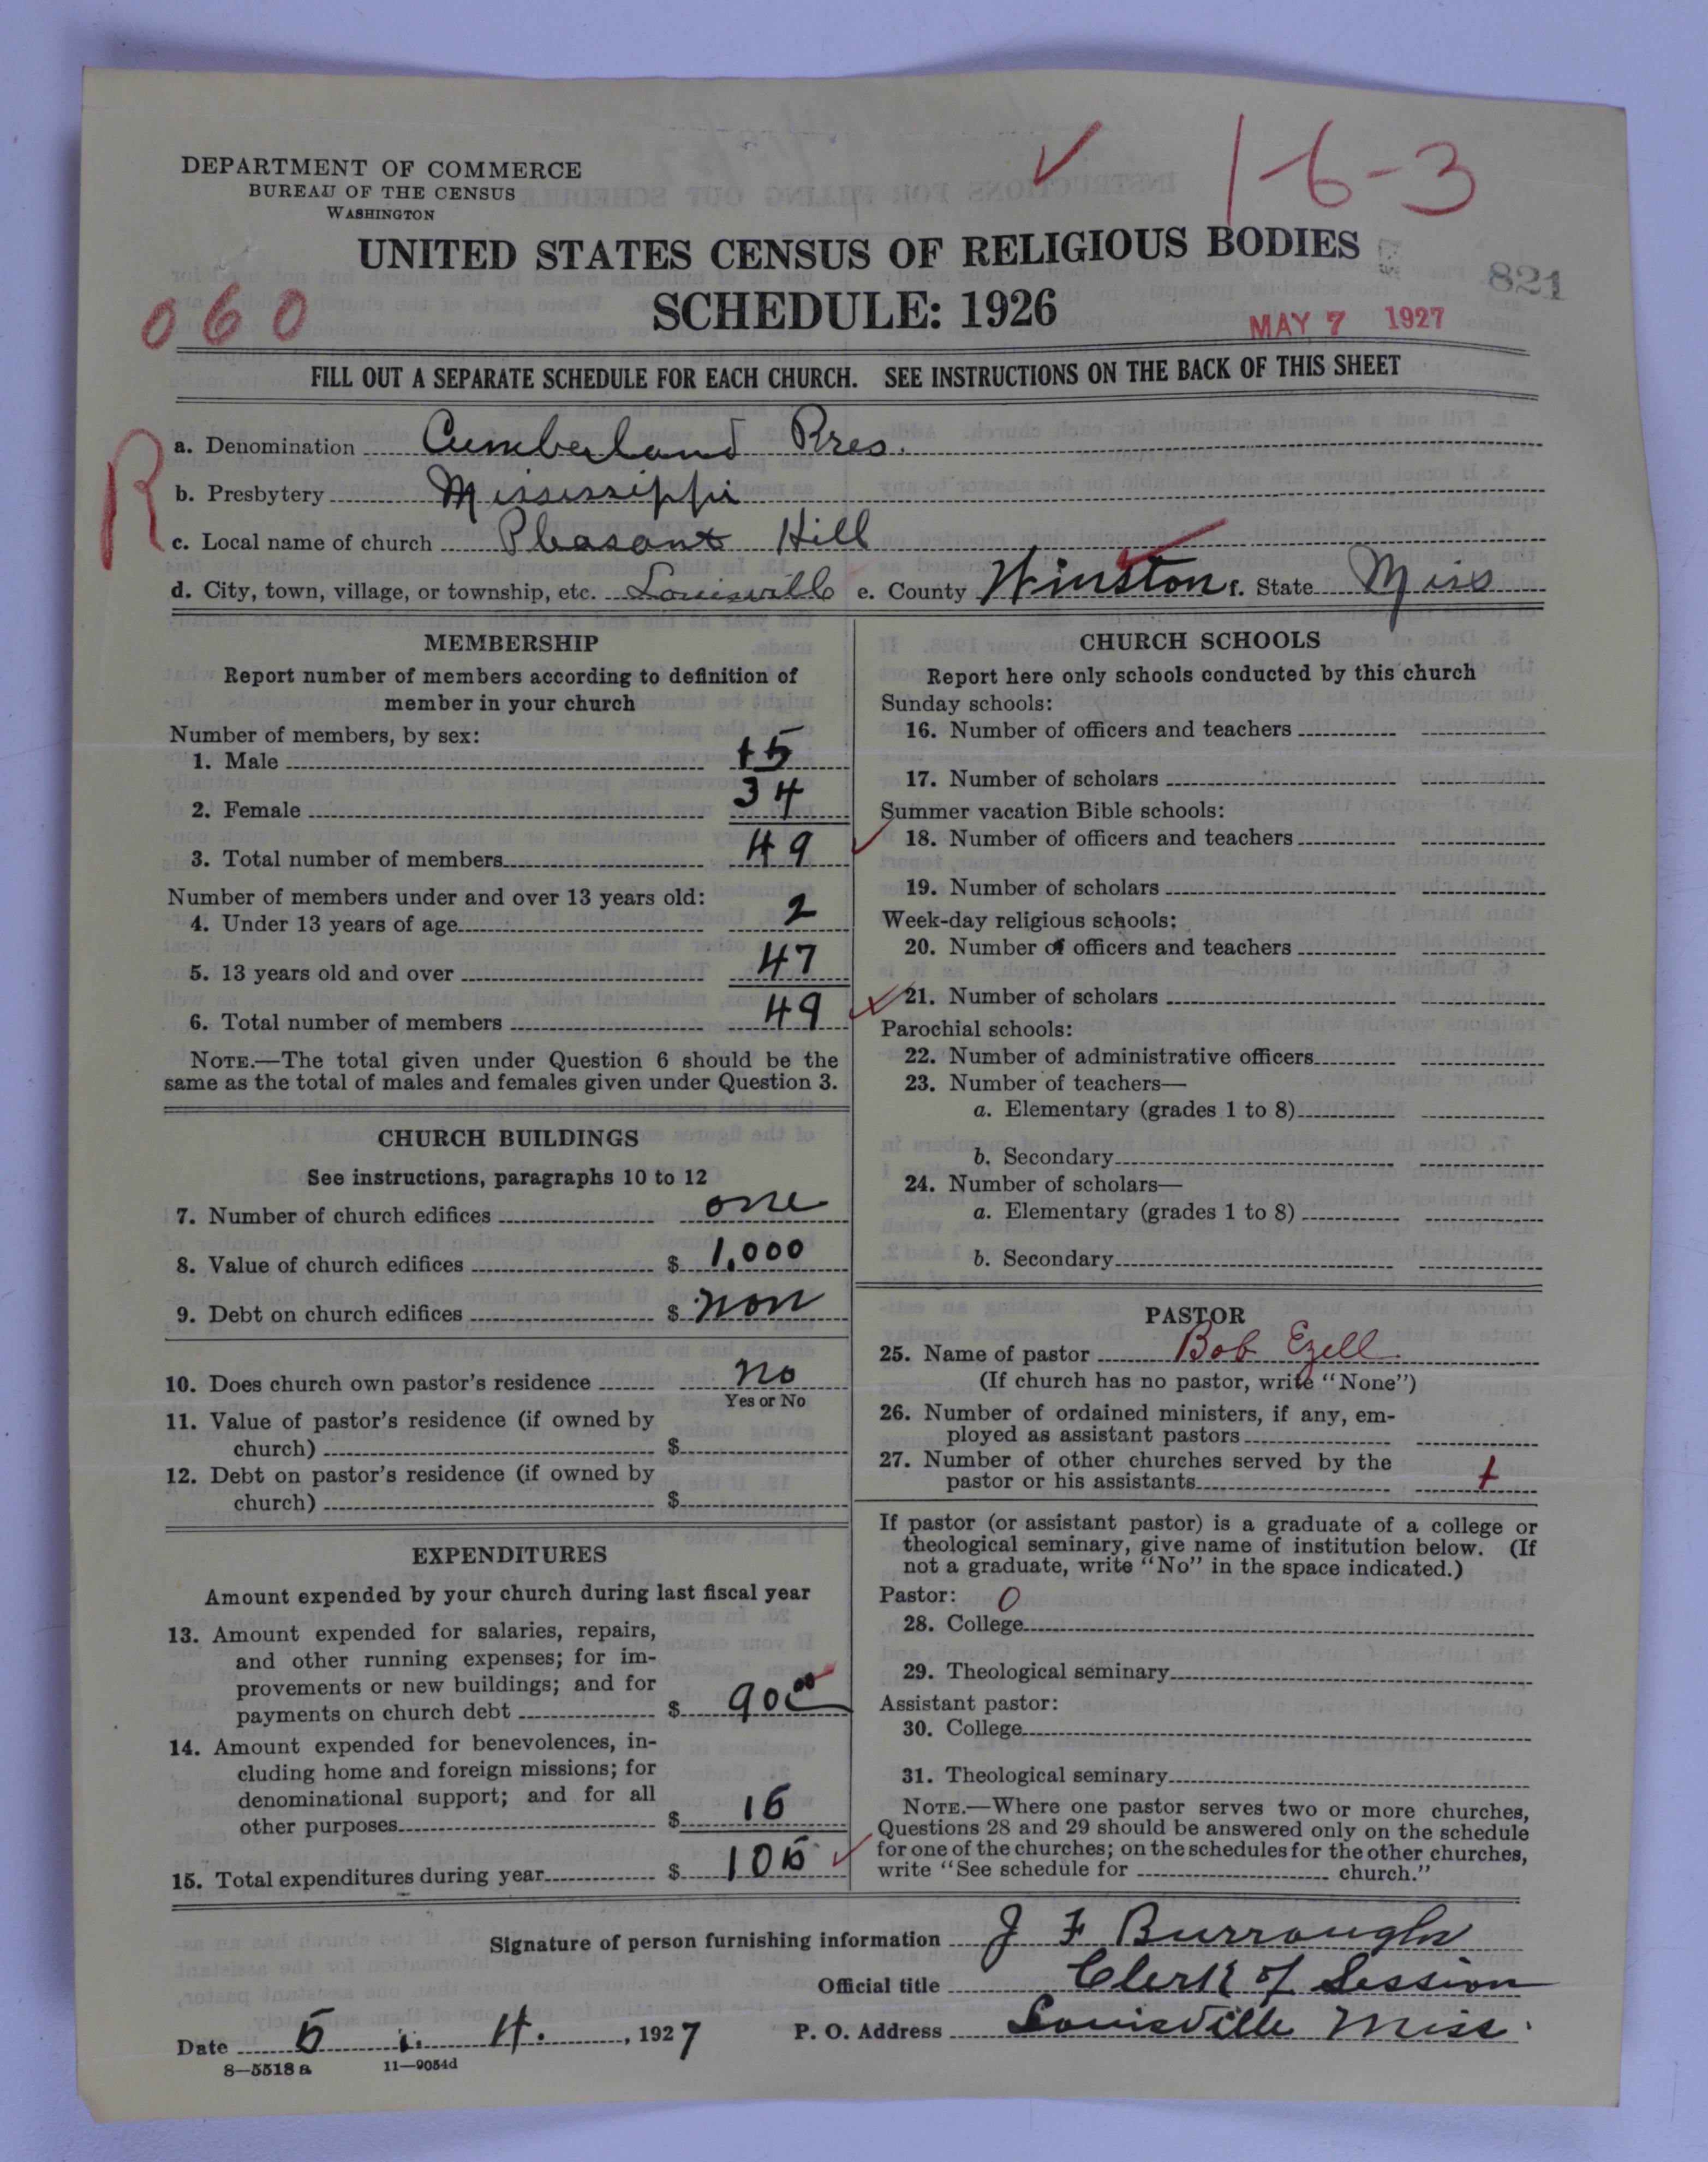 DEPARTMENT OF COMMERCE
BUREAU OF THE CENSUS
WASHINGTON
1-6-3
UNITED STATES CENSUS OF RELIGIOUS BODIES
821
060
SCHEDULE: 1926
MAY 7 1927
FILL OUT A SEPARATE SCHEDULE FOR EACH CHURCH. SEE INSTRUCTIONS ON THE BACK OF THIS SHEET
R
a. Denomination Cumberland Pres.
b. Presbytery Mississippi
c. Local name of church Pleasant Hill
d. City, town, village, or township, etc. Louisville e. County Winston f. State Miss
MEMBERSHIP
Report number of members according to definition of
member in your church
Number of members, by sex:
1. Male 15
2. Female 34
3. Total number of members 49
Number of members under and over 13 years old:
4. Under 13 years of age 2
5. 13 years old and over 47
6. Total number of members 49
NOTE.—The total given under Question 6 should be the
same as the total of males and females given under Question 3.
CHURCH BUILDINGS
See instructions, paragraphs 10 to 12
7. Number of church edifices one
8. Value of church edifices $ 1,000
9. Debt on church edifices $ non
10. Does church own pastor's residence no
Yes or No
11. Value of pastor's residence (if owned by
church) $
12. Debt on pastor's residence (if owned by
church) $
EXPENDITURES
Amount expended by your church during last fiscal year
13. Amount expended for salaries, repairs,
and other running expenses; for im-
provements or new buildings; and for
payments on church debt $ 90.00
14. Amount expended for benevolences, in-
cluding home and foreign missions; for
denominational support; and for all
other purposes $ 15
15. Total expenditures during year $ 105
CHURCH SCHOOLS
Report here only schools conducted by this church
Sunday schools:
16. Number of officers and teachers
17. Number of scholars
Summer vacation Bible schools:
18. Number of officers and teachers
19. Number of scholars
Week-day religious schools:
20. Number of officers and teachers
21. Number of scholars
Parochial schools:
22. Number of administrative officers
23. Number of teachers—
a. Elementary (grades 1 to 8)
b. Secondary
24. Number of scholars—
a. Elementary (grades 1 to 8)
b. Secondary
PASTOR
25. Name of pastor Bob Ezell
(If church has no pastor, write "None")
26. Number of ordained ministers, if any, em-
ployed as assistant pastors
27. Number of other churches served by the
pastor or his assistants 1
If pastor (or assistant pastor) is a graduate of a college or
theological seminary, give name of institution below. (If
not a graduate, write "No" in the space indicated.)
Pastor: 0
28. College
29. Theological seminary
Assistant pastor:
30. College
31. Theological seminary
NOTE.—Where one pastor serves two or more churches,
Questions 28 and 29 should be answered only on the schedule
for one of the churches; on the schedules for the other churches,
write "See schedule for church."
Signature of person furnishing information J F Burroughs
Official title Clerk of Session
Date 5 4., 1927 P. O. Address Louisville Miss.
8—5518 a 11—9054d